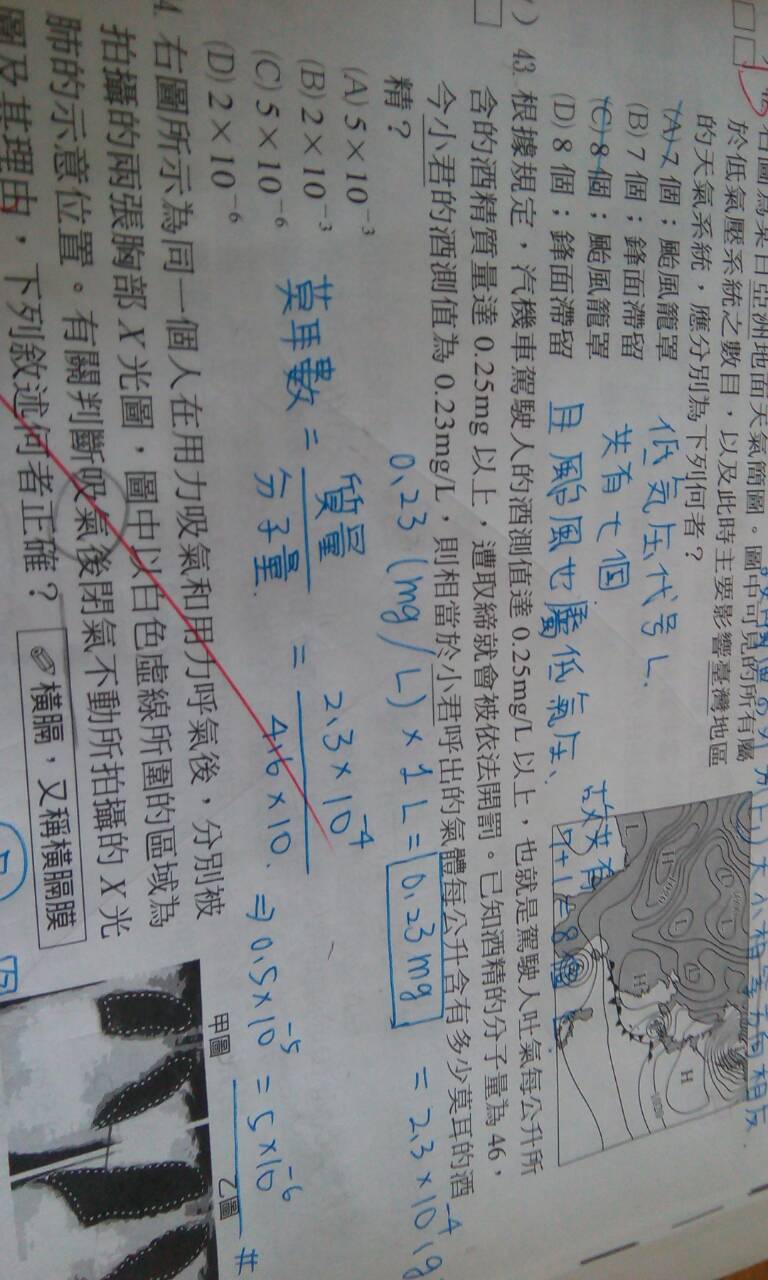 右圖為某日亞洲地面天氣簡圖。圖中可見的所有屬
於低氣壓系統之數目，以及此時主要影響臺灣地區
的天氣系統，應分別為下列何者？
(A) 7 個；颱風籠罩
(B) 7 個；鋒面滯留
(C) 8 個；颱風籠罩
(D) 8 個；鋒面滯留
低気压代号 L.
共有七個
且颱風也屬低氣压、
故共有
7+1=8個
43. 根據規定，汽機車駕駛人的酒測值達 0.25mg/L 以上，也就是駕駛人吐氣每公升所
含的酒精質量達 0.25mg 以上，遭取締就會被依法開罰。已知酒精的分子量為 46，
今小君的酒測值為 0.23mg/L，則相當於小君呼出的氣體每公升含有多少莫耳的酒
精？
(A) 5 × 10⁻³
(B) 2 × 10⁻³
(C) 5 × 10⁻⁶
(D) 2 × 10⁻⁶
0.23 (mg/L) × 1 L = 0.23 mg = 2.3 × 10⁻⁴ (g
莫耳數 = 質量 / 分子量. = 2.3 × 10⁻⁴ / 4.6 × 10. ⇒ 0.5 × 10⁻⁵ = 5 × 10⁻⁶ #
4. 右圖所示為同一個人在用力吸氣和用力呼氣後，分別被
拍攝的兩張胸部 X 光圖，圖中以白色虛線所圍的區域為
肺的示意位置。有關判斷吸氣後閉氣不動所拍攝的 X 光
圖及其理由，下列敘述何者正確？
橫膈，又稱橫膈膜
甲圖
乙圖
L
H
H
H